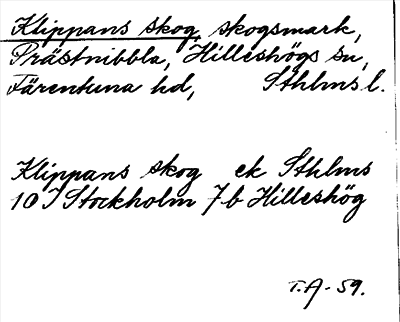 Klippans skog, skogsmark,
Prästnibbla, Hilleshögs sn,
Färentuna hd, Sthlms l.
Klippans skog ek Sthlms
10 I Stockholm 7 b Hilleshög
T.A-59.